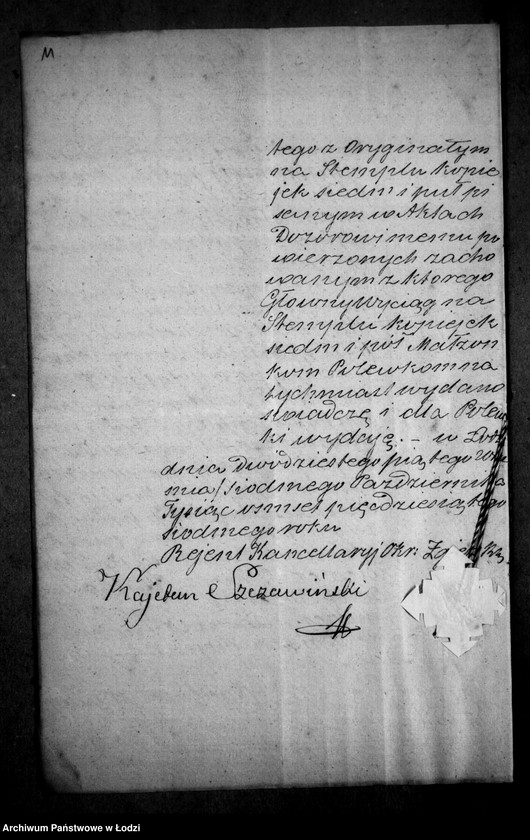 M
tego z Oryginałym
na Stemplu kopie
jek siedm i puł pi
sanym w Aktach
Dozorowi memu po
wierzonych zacho
wanym z którego
Główny Wyciąg na
Stemplu kopiejek
siedm i póś Małżon
kom Polewkom na
tychmiast wydano
świadczę i dla Polew
ki wydaję. — w
dnia Dwódziestego piątego Wrze
śnia/siodmego Października
Tysiąc ośmset pięćdziesiątego
siodmego roku
Rejent Kancellaryj Okr:
Kajetan Szczawiński
Archiwum Państwowe w Łodzi